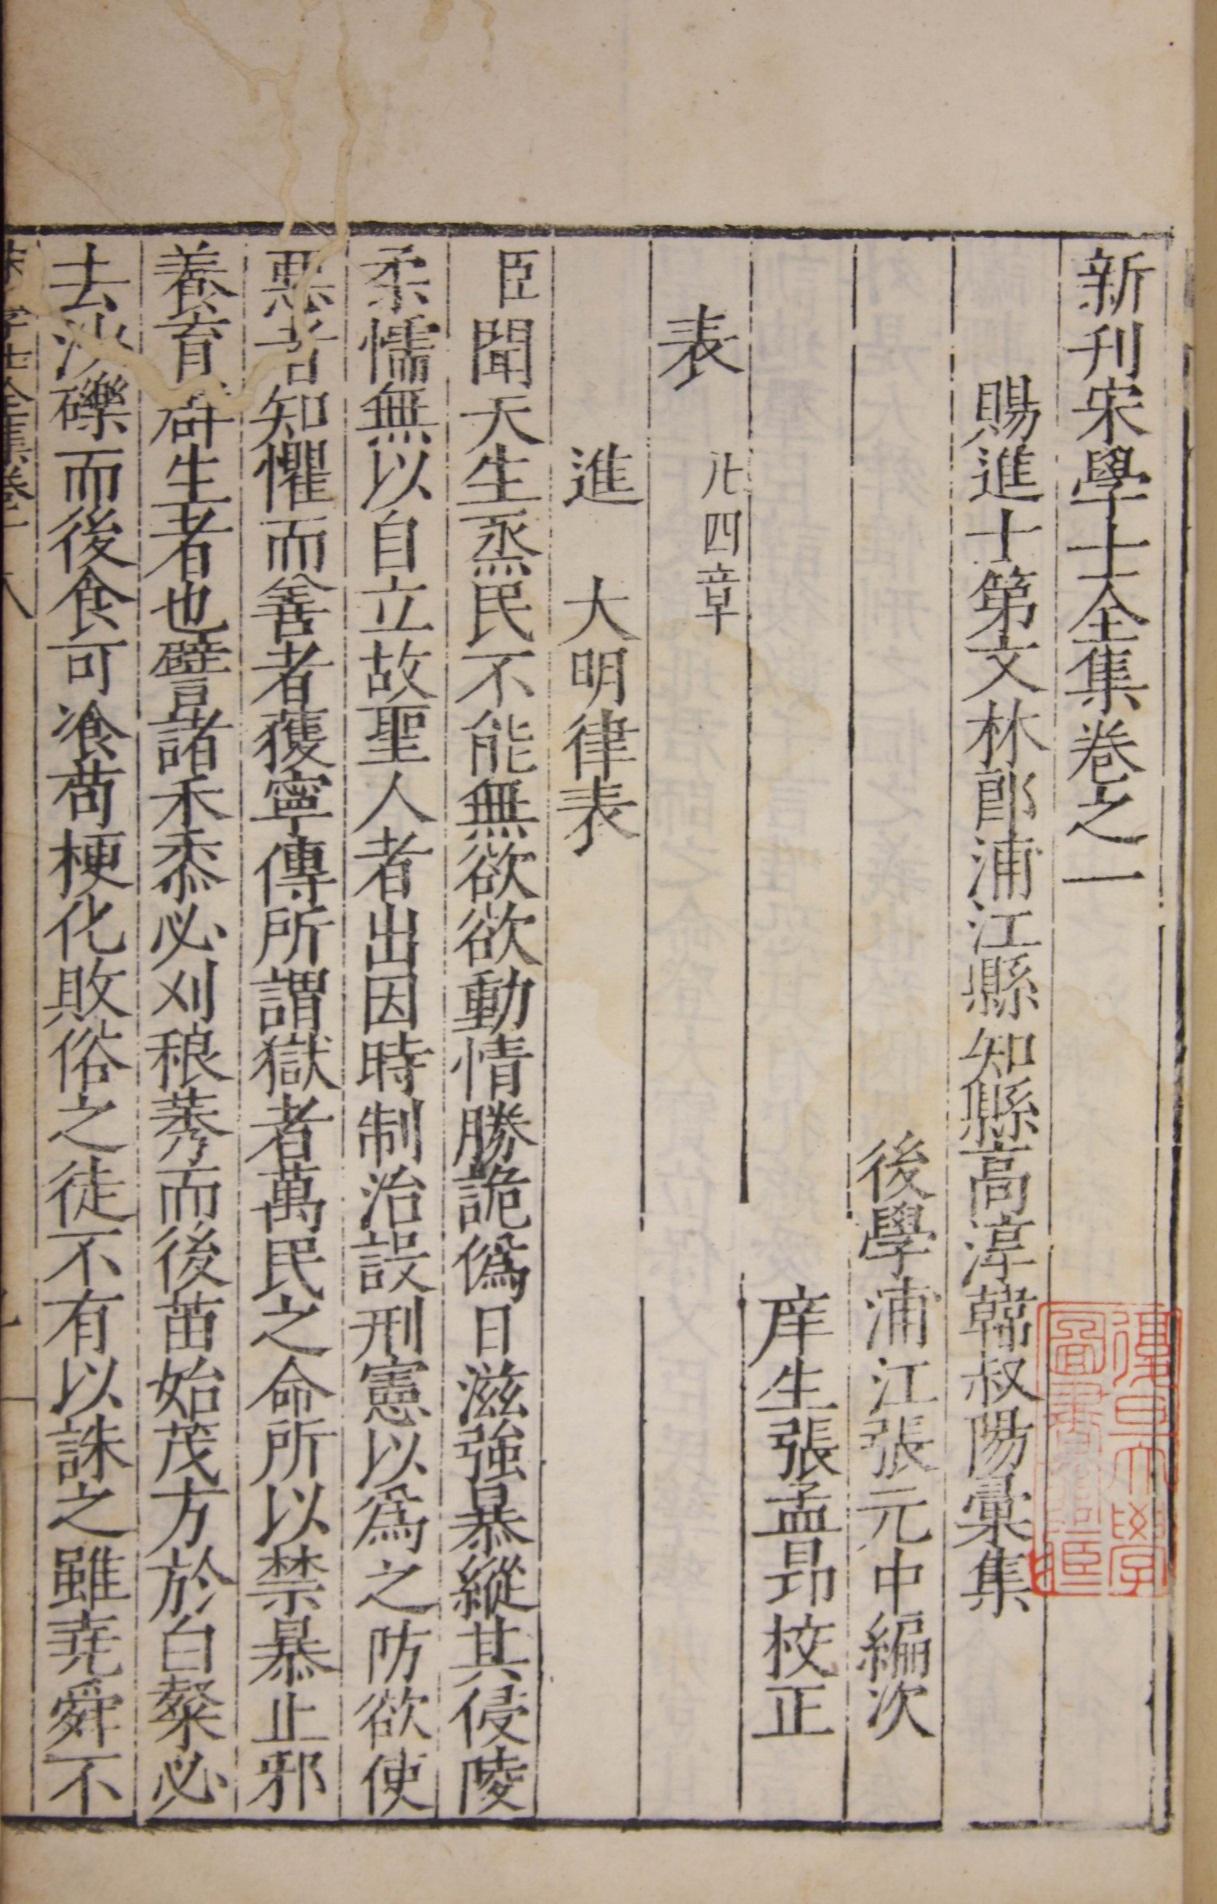 新刊宋學士全集卷之一
賜進士第文林郎浦江縣知縣高淳韓叔陽彙集
後學浦江張元中編次
庠生張孟昻校正
表 凡四章
進 大明律表
臣聞天生烝民不能無欲欲動情勝詭僞日滋強暴縱其侵陵
柔懦無以自立故聖人者出因時制治設刑憲以爲之防欲使
惡者知懼而善者獲寧傳所謂獄者萬民之命所以禁暴止邪
養育羣生者也譬諸禾黍必刈稂莠而後苗始茂方於白粲必
去沙礫而後食可飡苟梗化敗俗之徒不有以誅之雖堯舜不
復旦大學圖書館藏